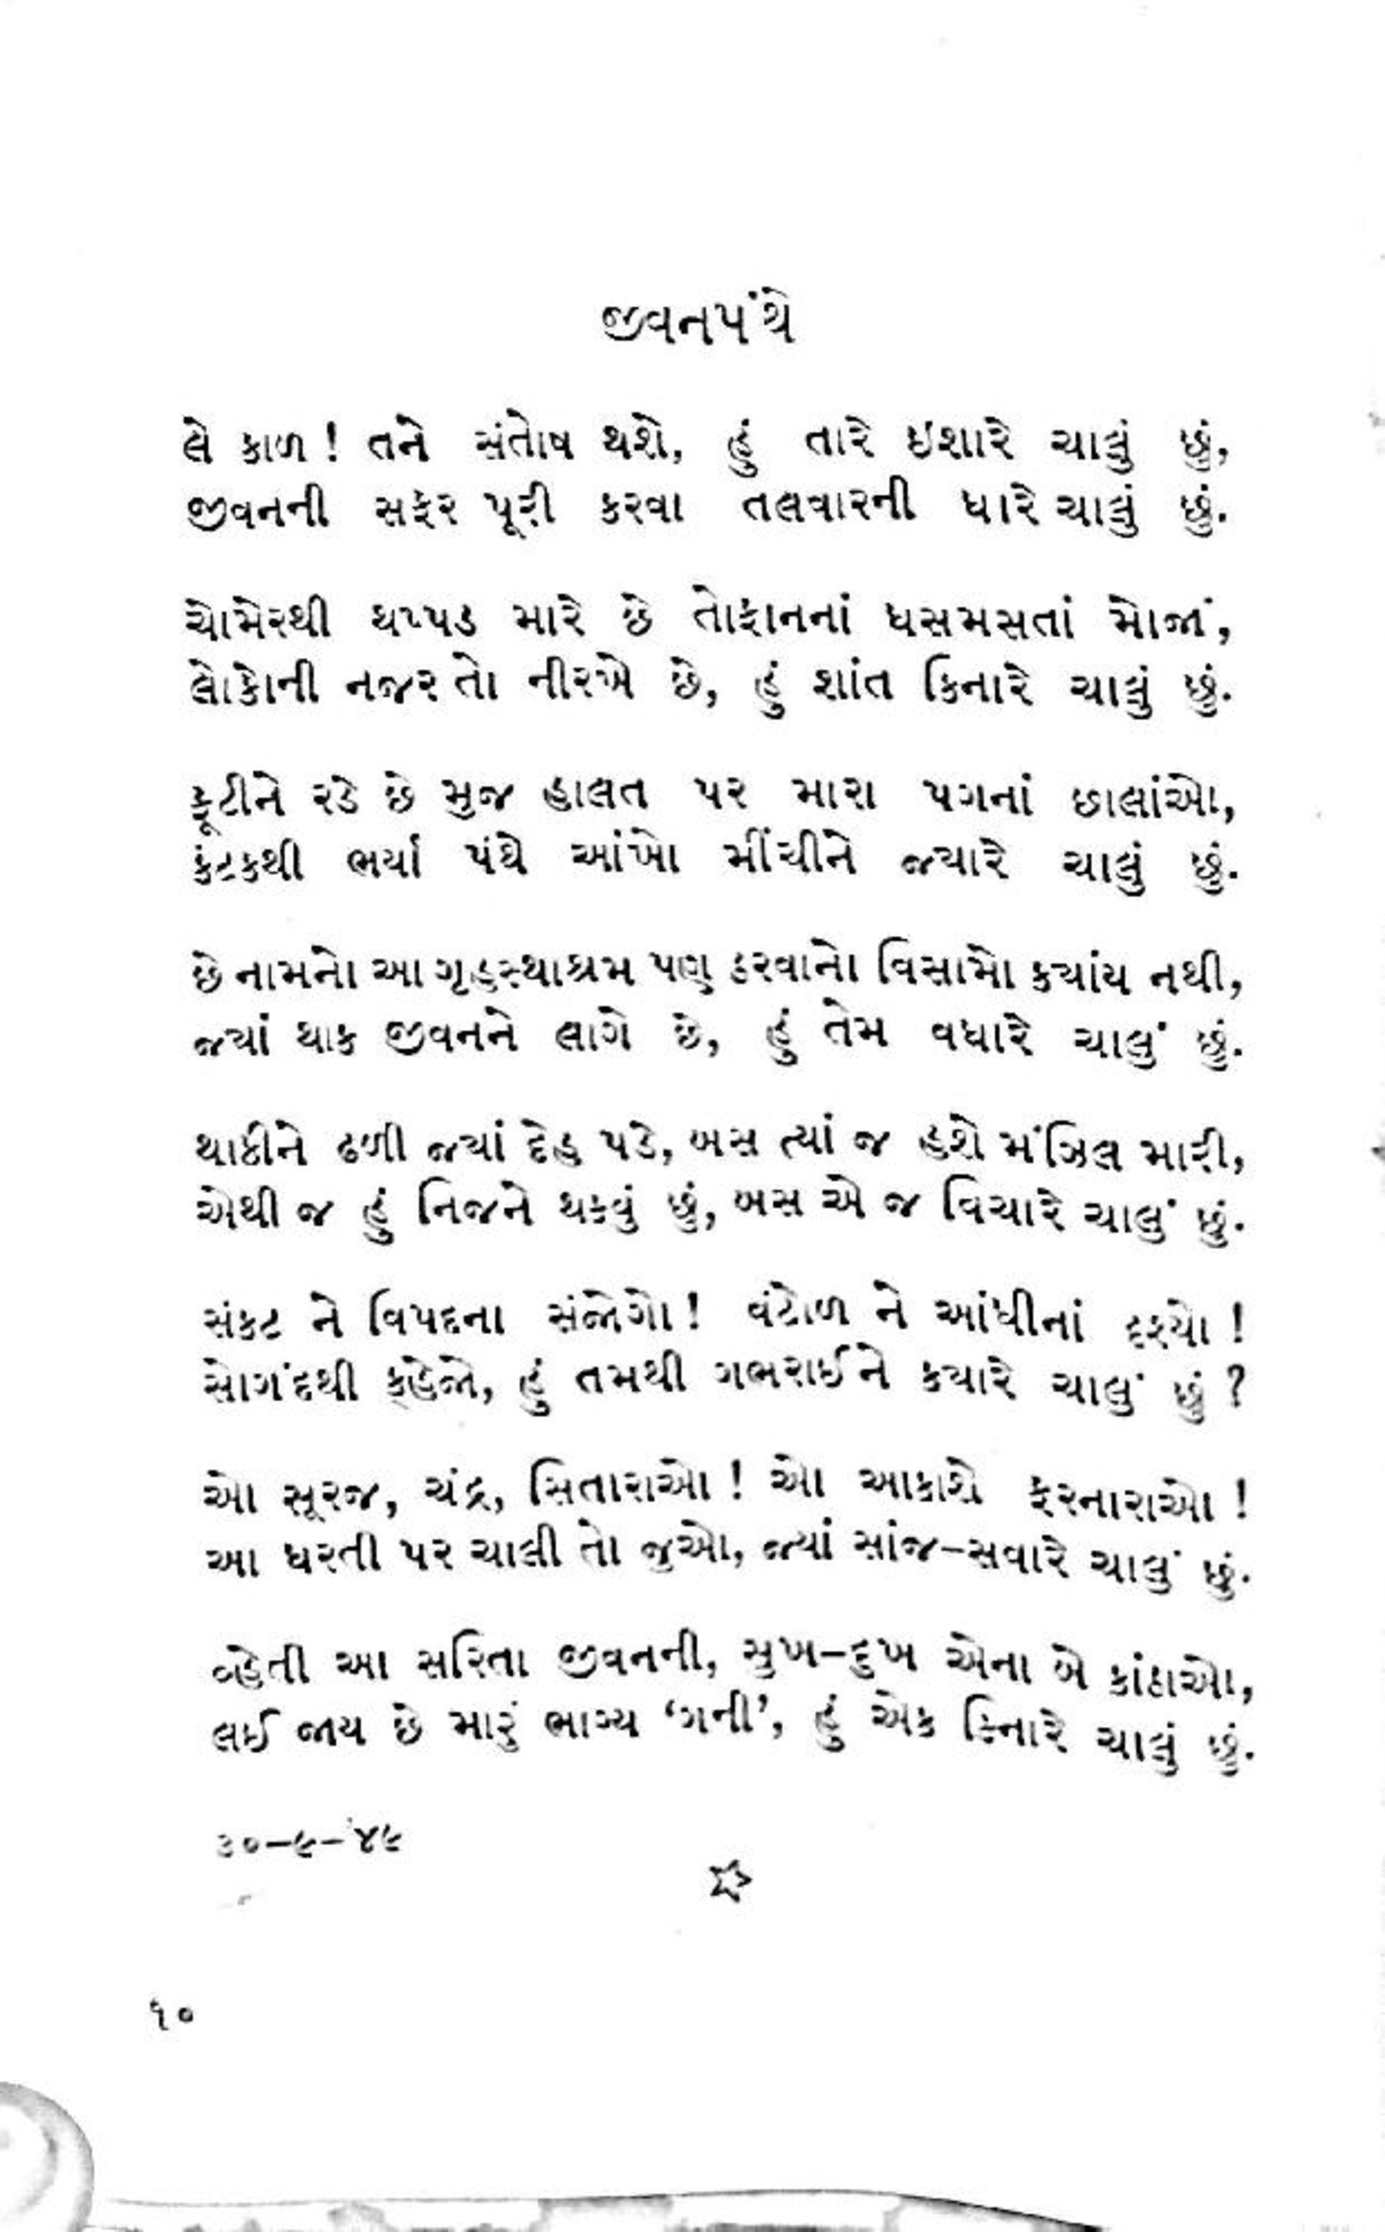 જીવનપંથે
લે કાળ ! તને સંતોષ થશે, હું તારે ઇશારે ચાલું છું,
જીવનની સફર પૂરી કરવા તલવારની ધારે ચાલું છું.
ચોમેરથી થપ્પડ મારે છે તોફાનનાં ધસમસતાં મોજાં,
લોકોની નજર તો નીરખે છે, હું શાંત કિનારે ચાલું છું.
ફૂટીને રડે છે મુજ હાલત પર મારા પગનાં છાલાંઓ,
કંટકથી ભર્યા પંથે આંખો મીંચીને જ્યારે ચાલું છું.
છે નામનો આ ગૃહસ્થાશ્રમ પણ કરવાનો વિસામો ક્યાંય નથી,
જ્યાં થાક જીવનને લાગે છે, હું તેમ વધારે ચાલું છું.
થાકીને ઢળી જ્યાં દેહ પડે, બસ ત્યાં જ હશે મંઝિલ મારી,
એથી જ હું નિજને થકવું છું, બસ એ જ વિચારે ચાલું છું.
સંકટ ને વિપદના સંજોગો ! વંટોળ ને આંધીનાં દૃશ્યો !
સોગંદથી કહેજો, હું તમથી ગભરાઈને ક્યારે ચાલું છું ?
ઓ સૂરજ, ચંદ્ર, સિતારાઓ ! ઓ આકાશે ફરનારાઓ !
આ ધરતી પર ચાલી તો જુઓ, જ્યાં સાંજ-સવારે ચાલું છું.
વ્હેતી આ સરિતા જીવનની, સુખ-દુખ એના બે કાંઠાઓ,
લઈ જાય છે મારું ભાગ્ય ‘ગની’, હું એક કિનારે ચાલું છું.
૩૦-૯-'૪૯
૧૦